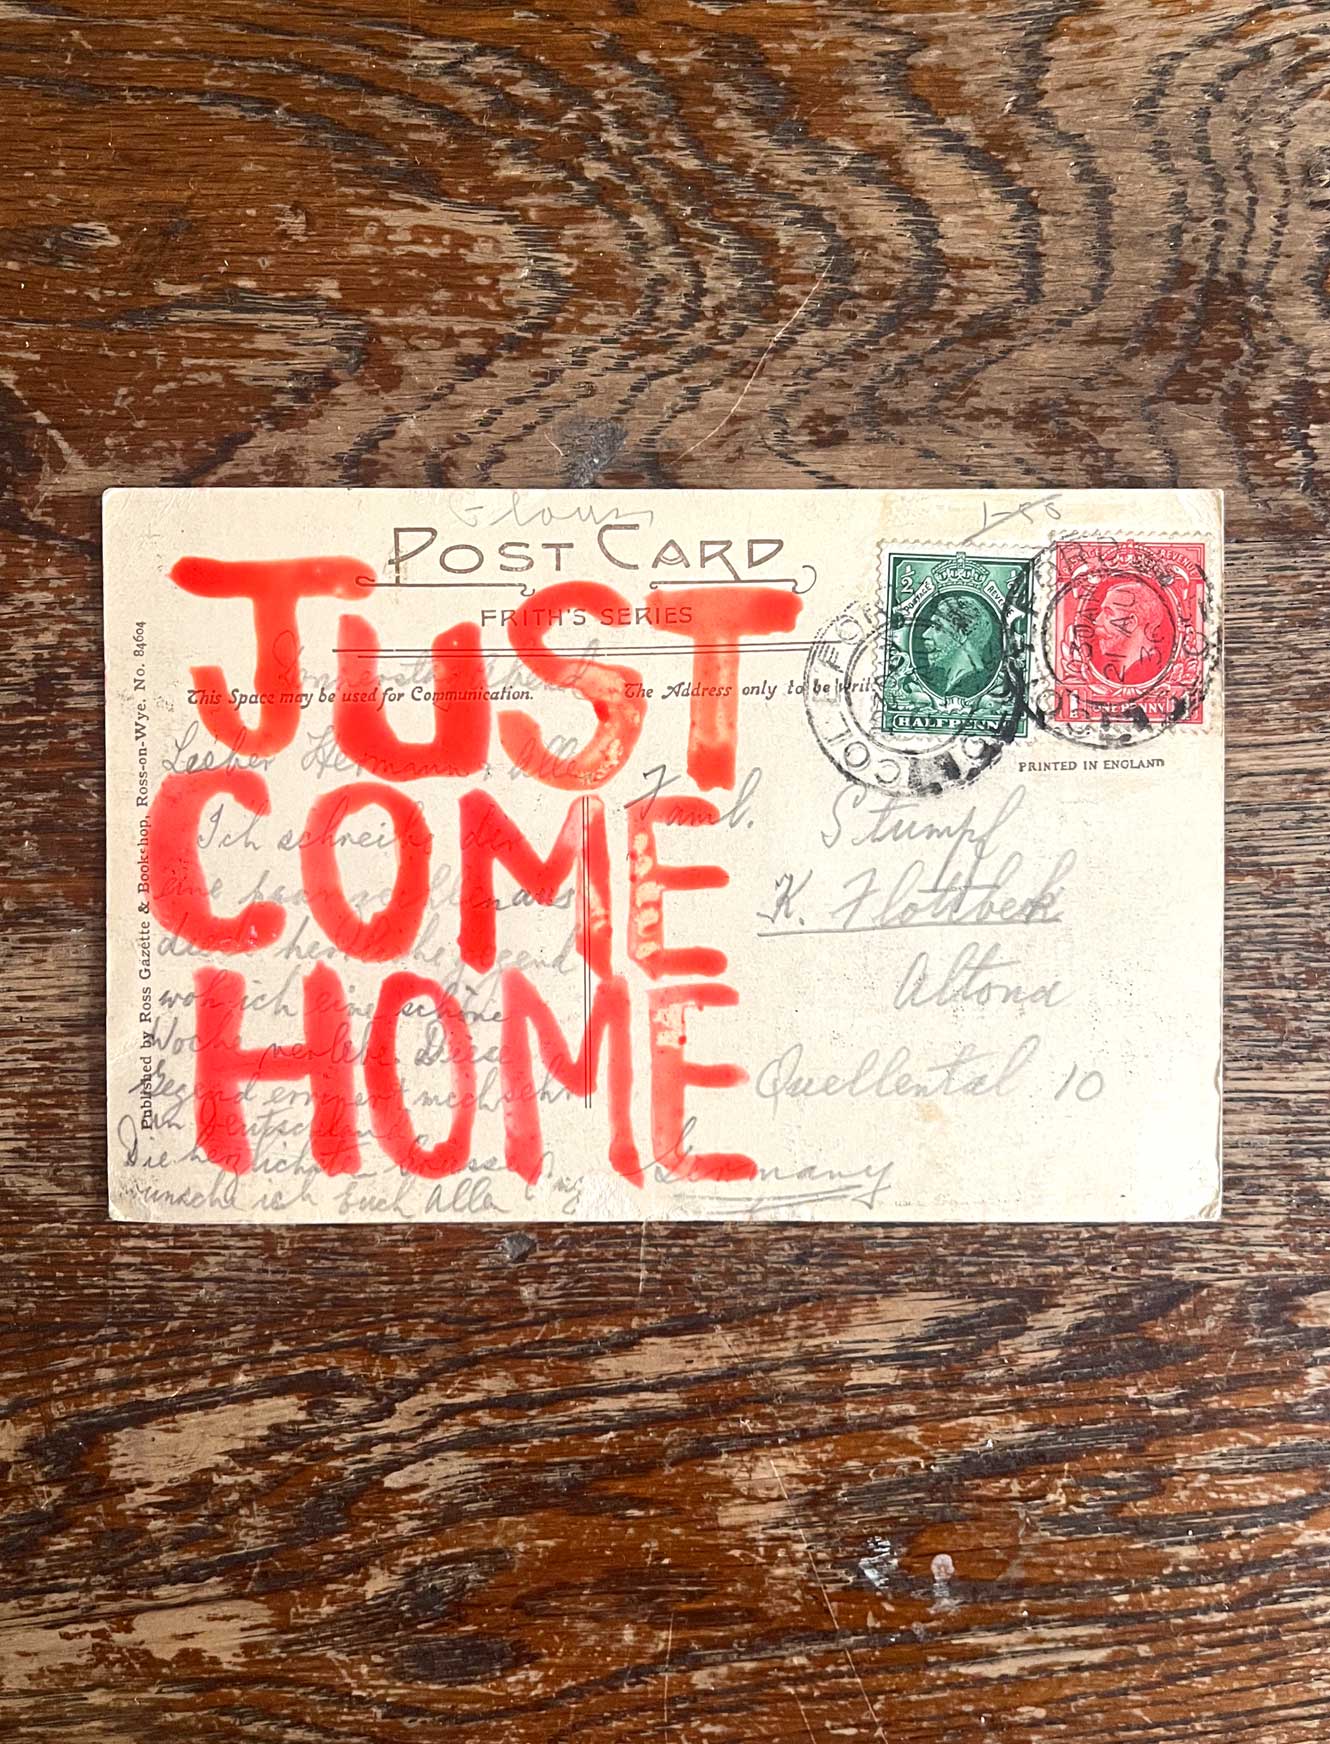 1-50
POST CARD
FRITH'S SERIES
This Space may be used for Communication.
The Address only to be Writ
Published by Ross Gazette & Bookshop, Ross-on-Wye. No. 84604
JUST
COME
HOME
Lieber Hermann + Alle
Ich schreibe
eine aus
herrliche gegend
wo ich eine schöne
Woche verlebe. Diese
Gegend erinnert mich sehr
an Deutschland
Die herzlichsten Grüsse
wünsche ich Euch Allen
Famb.
Stumpf
K. Flottbek
Altona
Quellental 10
Germany
1/2
POSTAGE REVENUE
HALFPENNY
POSTAGE REVENUE
ONE PENNY
COLEFORD
GLOS
21 AU
36
PRINTED IN ENGLAND